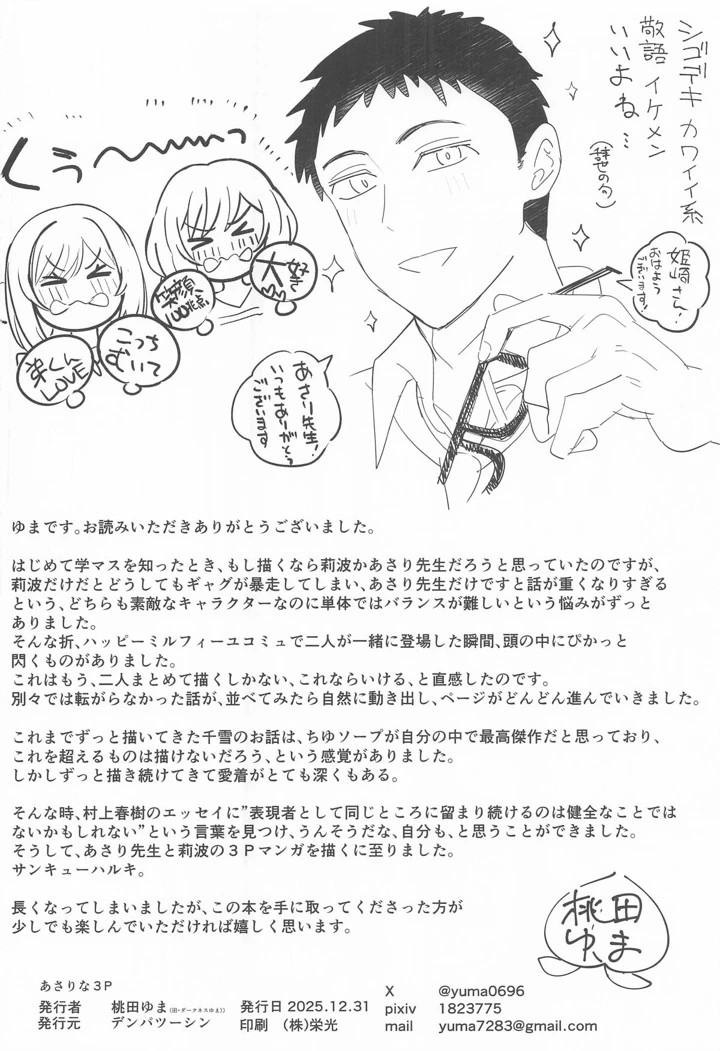 シゴデキ カワイイ系
敬語 イケメン
いいよね…
姫崎さん!
おはよう
ございます!
くぅ〜っ
大好き
笑顔、
100億点
こっち
むいて
弟くん
LOVE
あさり先生!
いつもありがとう
ございます
ゆまです。お読みいただきありがとうございました。
はじめて学マスを知ったとき、もし描くなら莉波かあさり先生だろうと思っていたのですが、
莉波だけだとどうしてもギャグが暴走してしまい、あさり先生だけですと話が重くなりすぎる
という、どちらも素敵なキャラクターなのに単体ではバランスが難しいという悩みがずっと
ありました。
そんな折、ハッピーミルフィーユコミュで二人が一緒に登場した瞬間、頭の中にぴかっと
閃くものがありました。
これはもう、二人まとめて描くしかない、これならいける、と直感したのです。
別々では転がらなかった話が、並べてみたら自然に動き出し、ページがどんどん進んでいきました。
これまでずっと描いてきた千雪のお話は、ちゆソープが自分の中で最高傑作だと思っており、
これを超えるものは描けないだろう、という感覚がありました。
しかしずっと描き続けてきて愛着がとても深くもある。
そんな時、村上春樹のエッセイに”表現者として同じところに留まり続けるのは健全なことでは
ないかもしれない”という言葉を見つけ、うんそうだな、自分も、と思うことができました。
そうして、あさり先生と莉波の3Pマンガを描くに至りました。
サンキューハルキ。
長くなってしまいましたが、この本を手に取ってくださった方が
少しでも楽しんでいただければ嬉しく思います。
桃田
ゆま
あさりな3P
発行者 桃田ゆま(旧・ダークネスゆま)) 発行日 2025.12.31
発行元 デンパツーシン 印刷 (株)栄光
X @yuma0696
pixiv 1823775
mail yuma7283@gmail.com